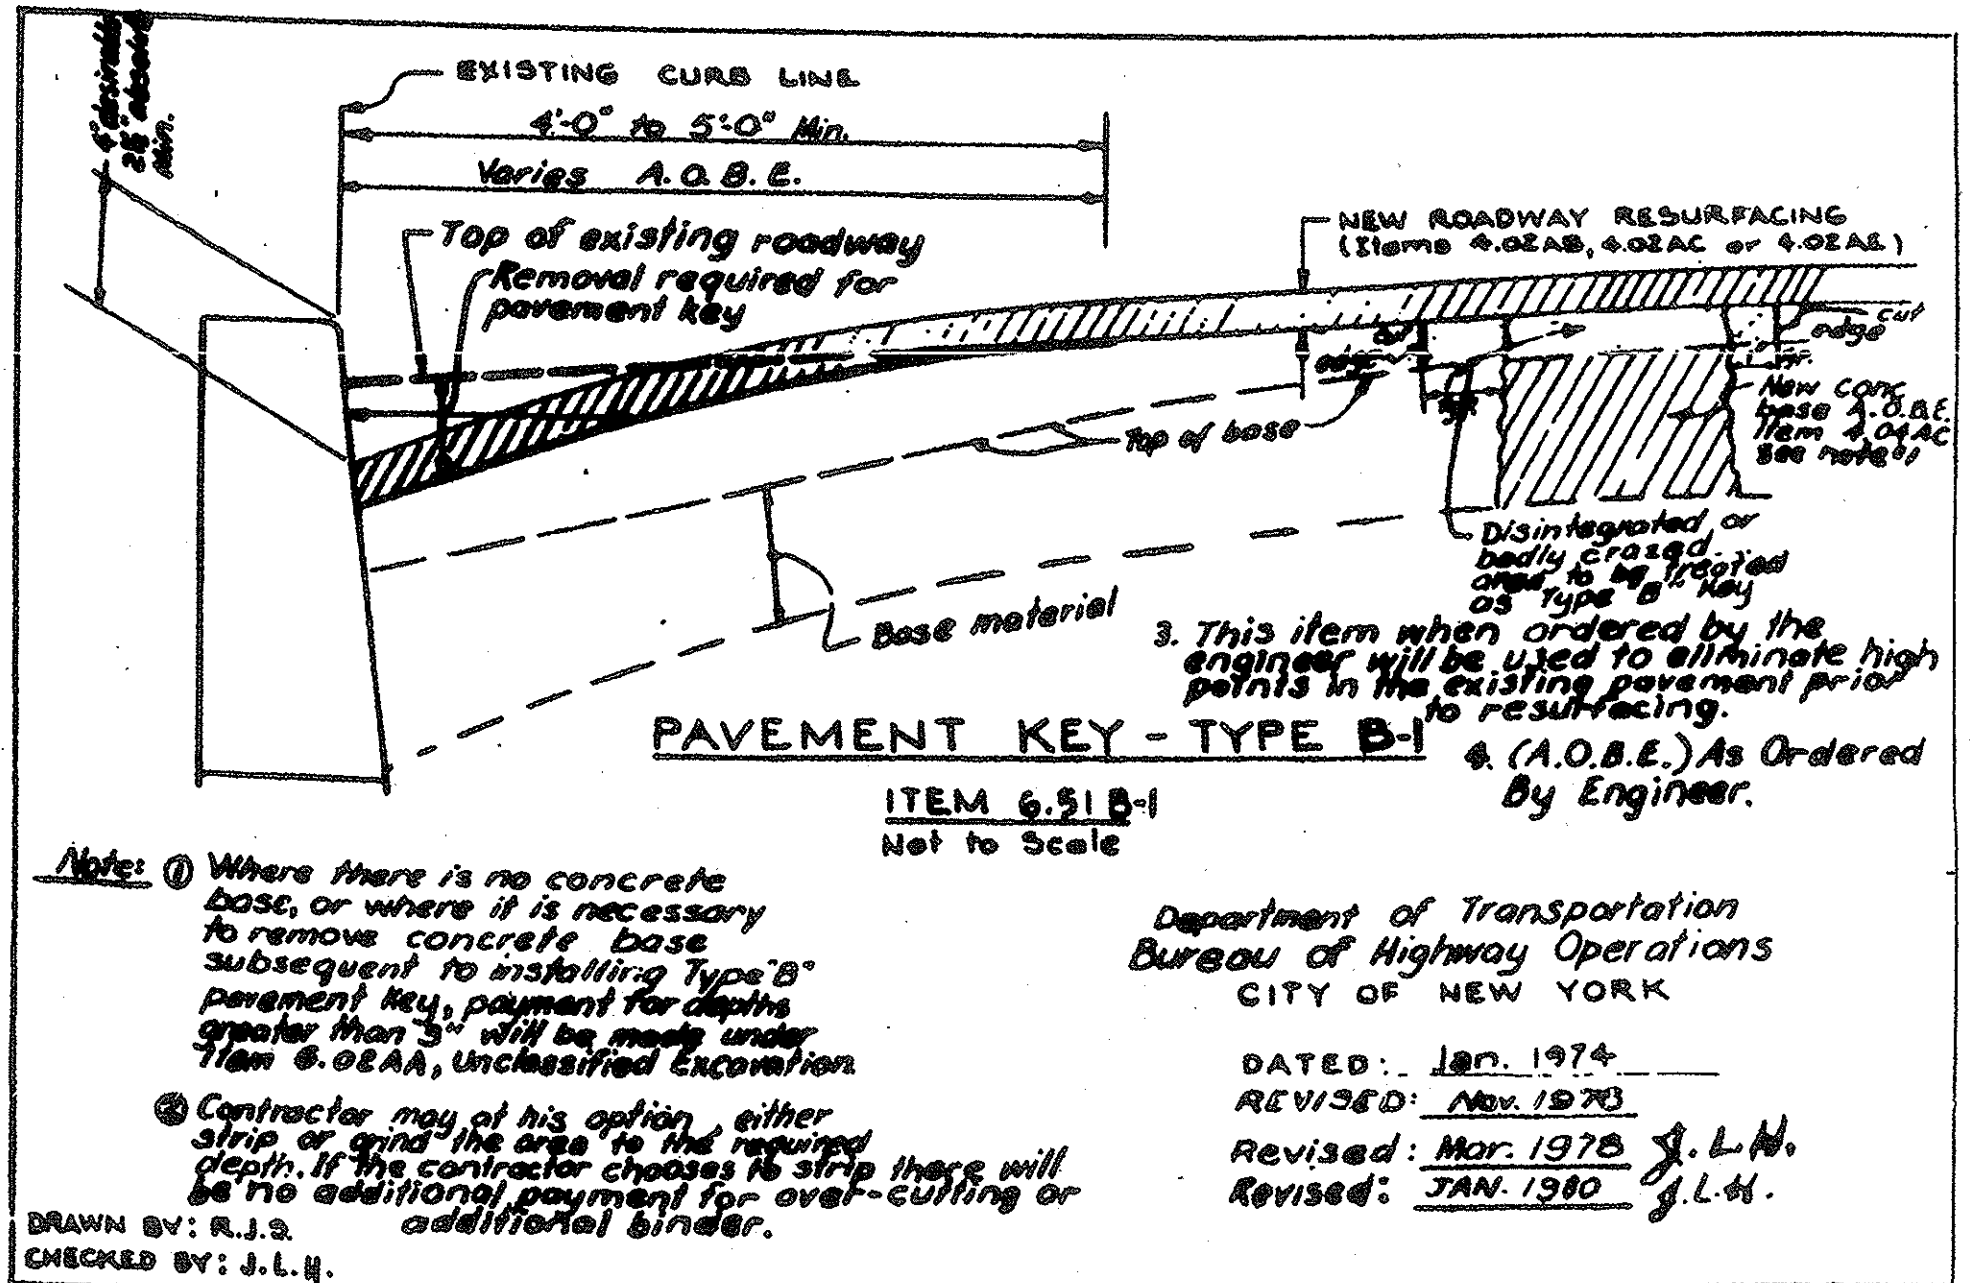 4" desirable
2½" absolute
Min.
EXISTING CURB LINE
4'-0" to 5'-0" Min.
Varies A.O.B.E.
Top of existing roadway
Removal required for
pavement key
NEW ROADWAY RESURFACING
(Items 4.02AB, 4.02AC or 4.02AE)
cut
edge
cut
edge
Top of base
New conc.
base A.O.B.E.
Item 4.04AC
see note 1
Disintegrated or
badly crazed
area to be treated
as Type "B" Key
Base material
3. This item when ordered by the
engineer will be used to eliminate high
points in the existing pavement prior
to resurfacing.
PAVEMENT KEY - TYPE B-1
4. (A.O.B.E.) As Ordered
By Engineer.
ITEM 6.51 B-1
Not to Scale
Note: ① Where there is no concrete
base, or where it is necessary
to remove concrete base
subsequent to installing Type "B"
pavement key, payment for depths
greater than 3" will be made under
Item 6.02AA, Unclassified Excavation
② Contractor may at his option, either
strip or grind the area to the required
depth. If the contractor chooses to strip there will
be no additional payment for over-cutting or
additional binder.
Department of Transportation
Bureau of Highway Operations
CITY OF NEW YORK
DATED: Jan. 1974
REVISED: Nov.
Revised: Mar. 1978 J.L.H.
Revised: JAN. 1980 J.L.H.
DRAWN BY: R.J.
CHECKED BY: J.L.H.